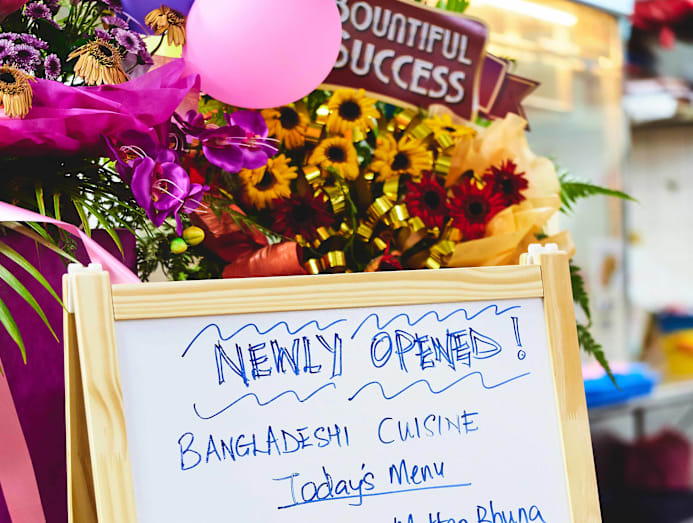 BOUNTIFUL
SUCCESS
NEWLY OPENED!
BANGLADESHI CUISINE
Today's Menu
Mutton Bhuna